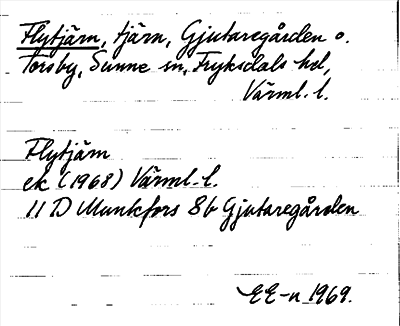 Flytjärn, tjärn, Gjutaregården o.
Torsby, Sunne sn, Fryksdals hd,
Värml. l.
Flytjärn
ek (1968) Värml. l.
11 D Munkfors 8b Gjutaregården
EE-n 1969.